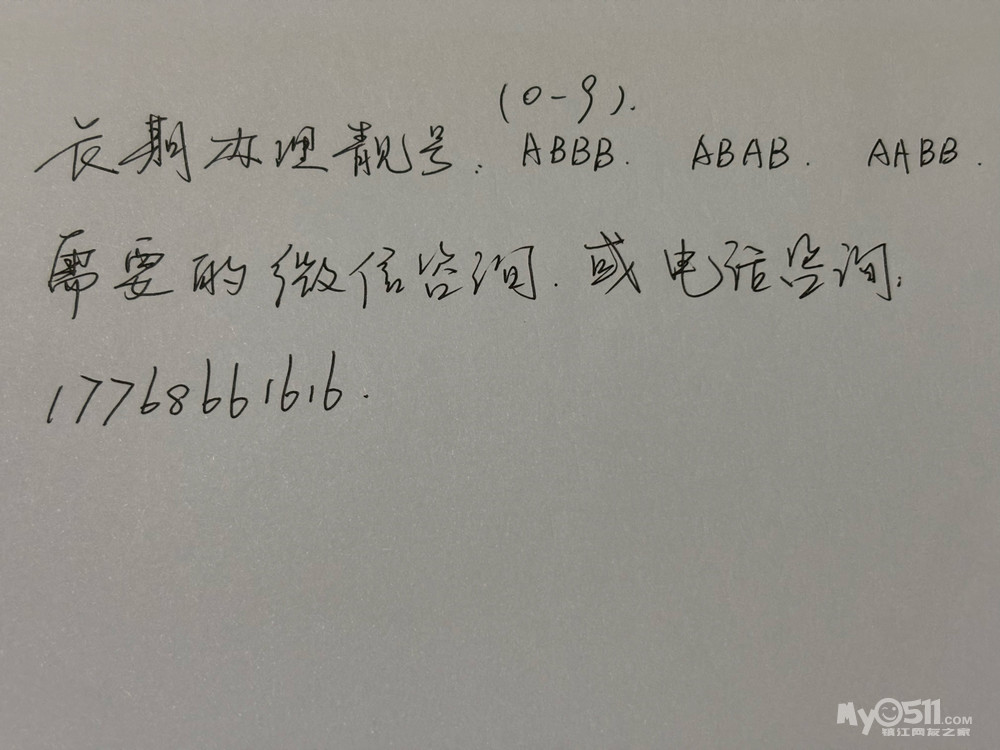 (0-9).
长期办理靓号: ABBB. ABAB. AABB.
需要的微信咨询.或电话咨询:
17768661616.
My0511.COM
镇江网友之家